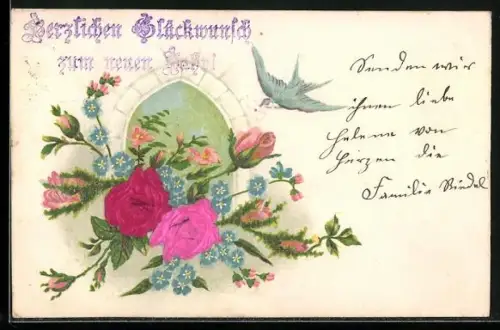 Herzlichen Glückwunsch
zum neuen Jahr!
Senden wir
ihnen liebe
Helene von
Herzen die
Familie Riedel